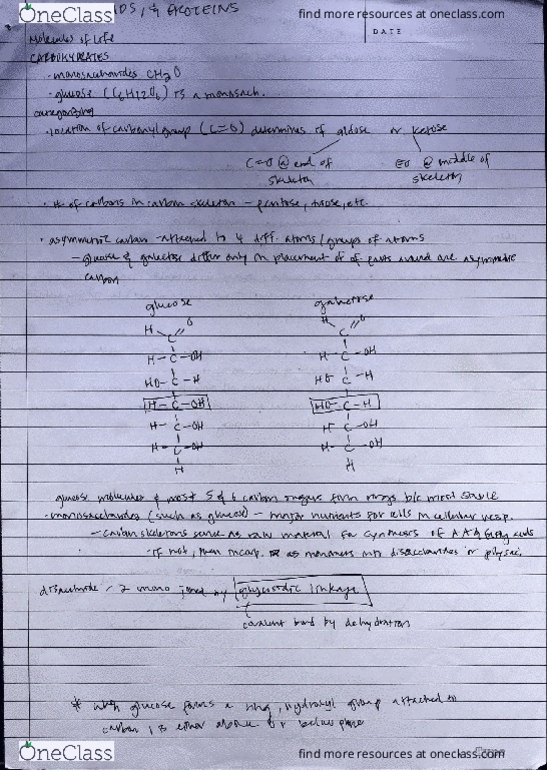 OneClass
find more resources at oneclass.com
IDS, & PROTEINS
DATE
Molecules of Life
CARBOHYDRATES
- monosaccharides CH2O
- glucose (C6H12O6) is a monosach.
categorizing
- location of carbonyl group (C=O) determines if aldose or ketose
C=O @ end of skeleton
C=O @ middle of skeleton
- # of carbons in carbon skeleton - pentose, triose, etc.
- asymmetric carbon - attached to 4 diff. atoms/groups of atoms
- glucose & galactose differ only on placement of parts around one asymmetric
carbon
glucose galactose
H O H O
C C
H-C-OH H-C-OH
HO-C-H HO-C-H
H-C-OH HO-C-H
H-C-OH H-C-OH
H-C-OH H-C-OH
H H
glucose molecules & most 5 & 6 carbon sugars form rings b/c most stable
- monosaccharides (such as glucose) - major nutrients for cells in cellular resp.
- carbon skeletons serve as raw material for synthesis of AA & fatty acids
- if not, then incorp. as monomers into disaccharides or polysac.
disaccharide - 2 mono joined by glycosidic linkage
covalent bond by dehydration
* when glucose forms a ring, hydroxyl group attached to
carbon 1 is either above or below plane
OneClass
find more resources at oneclass.com